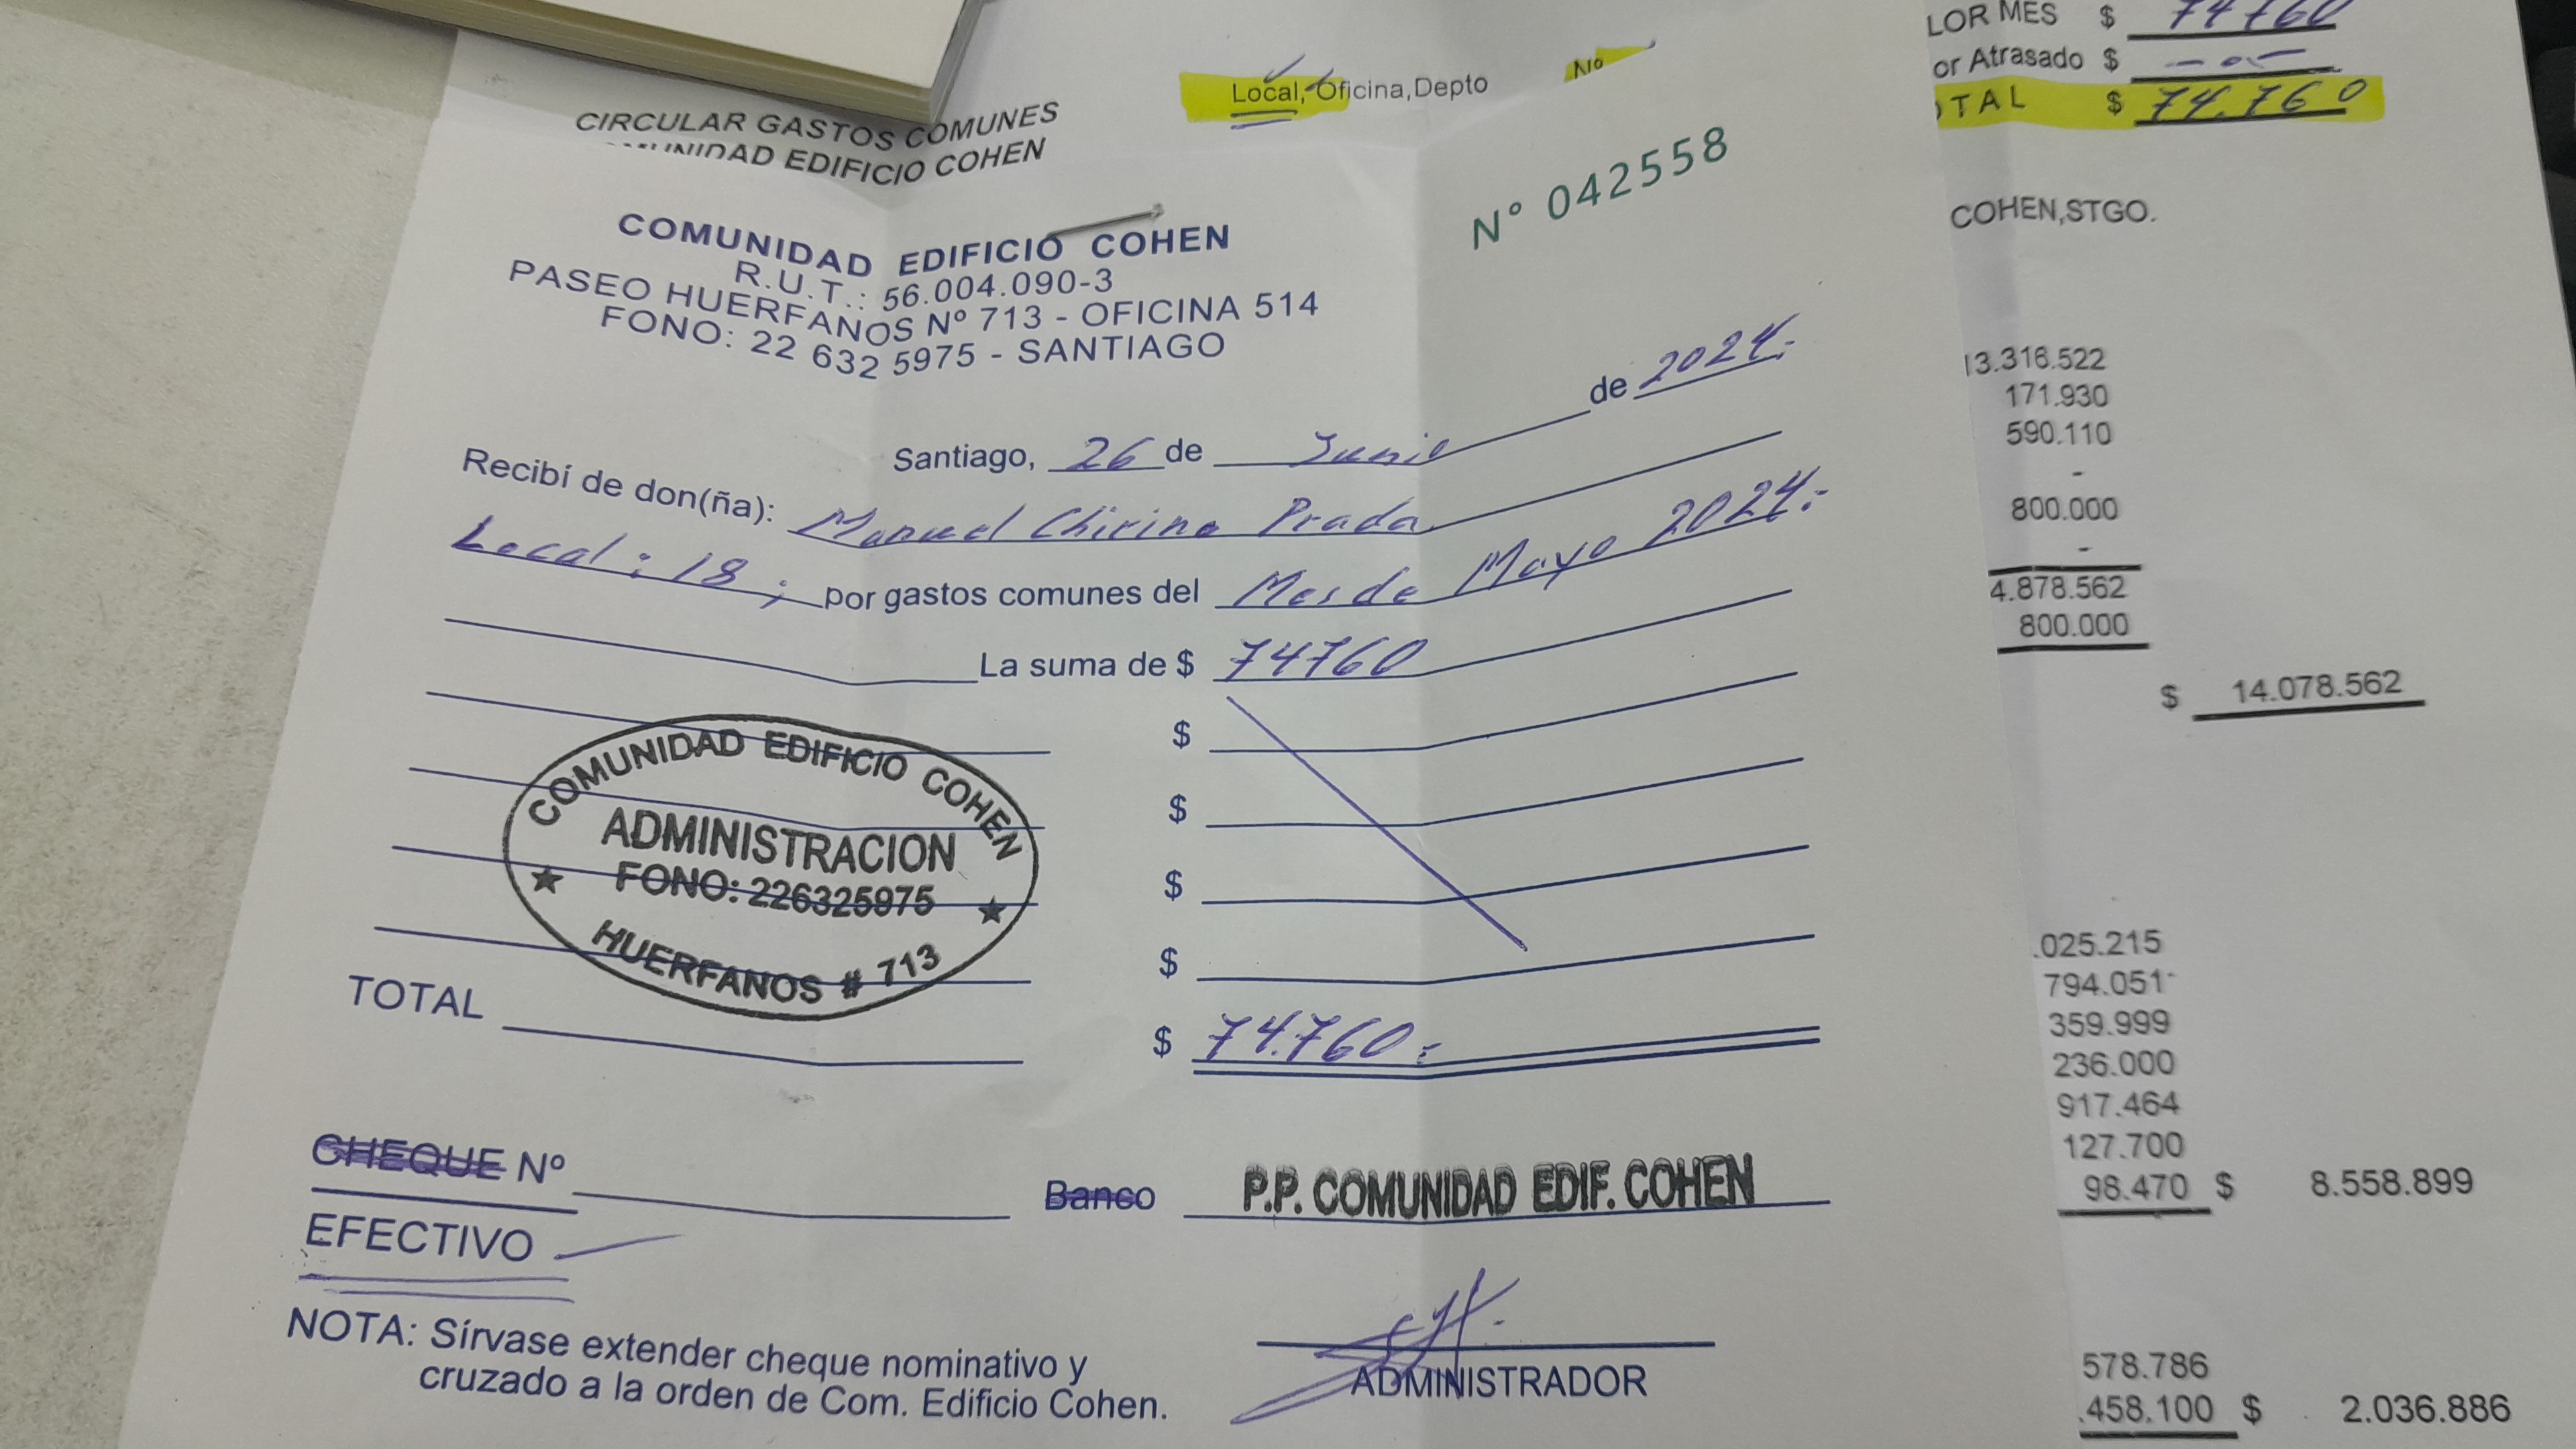 CIRCULAR GASTOS COMUNES
EDIFICIO COHEN
Local, Oficina, Depto
Nº
LOR MES $ 74760
or Atrasado $ -0-
TAL $ 74.760
COMUNIDAD EDIFICIO COHEN
R.U.T.: 56.004.090-3
PASEO HUERFANOS Nº 713 - OFICINA 514
FONO: 22 632 5975 - SANTIAGO
Nº 042558
Santiago, 26 de Junio de 2024.-
Recibí de don(ña): Manuel Chirino Prada
Local: 18; por gastos comunes del Mes de Mayo 2024.-
La suma de $ 74760
$
$
$
$
TOTAL $ 74.760.-
COMUNIDAD EDIFICIO COHEN
ADMINISTRACION
★ FONO: 226325975 ★
HUERFANOS # 713
CHEQUE Nº Banco
P.P. COMUNIDAD EDIF. COHEN
EFECTIVO
ADMINISTRADOR
NOTA: Sírvase extender cheque nominativo y
cruzado a la orden de Com. Edificio Cohen.
COHEN,STGO.
13.316.522
171.930
590.110
-
800.000
-
4.878.562
800.000
$ 14.078.562
.025.215
794.051
359.999
236.000
917.464
127.700
98.470 $ 8.558.899
578.786
.458.100 $ 2.036.886